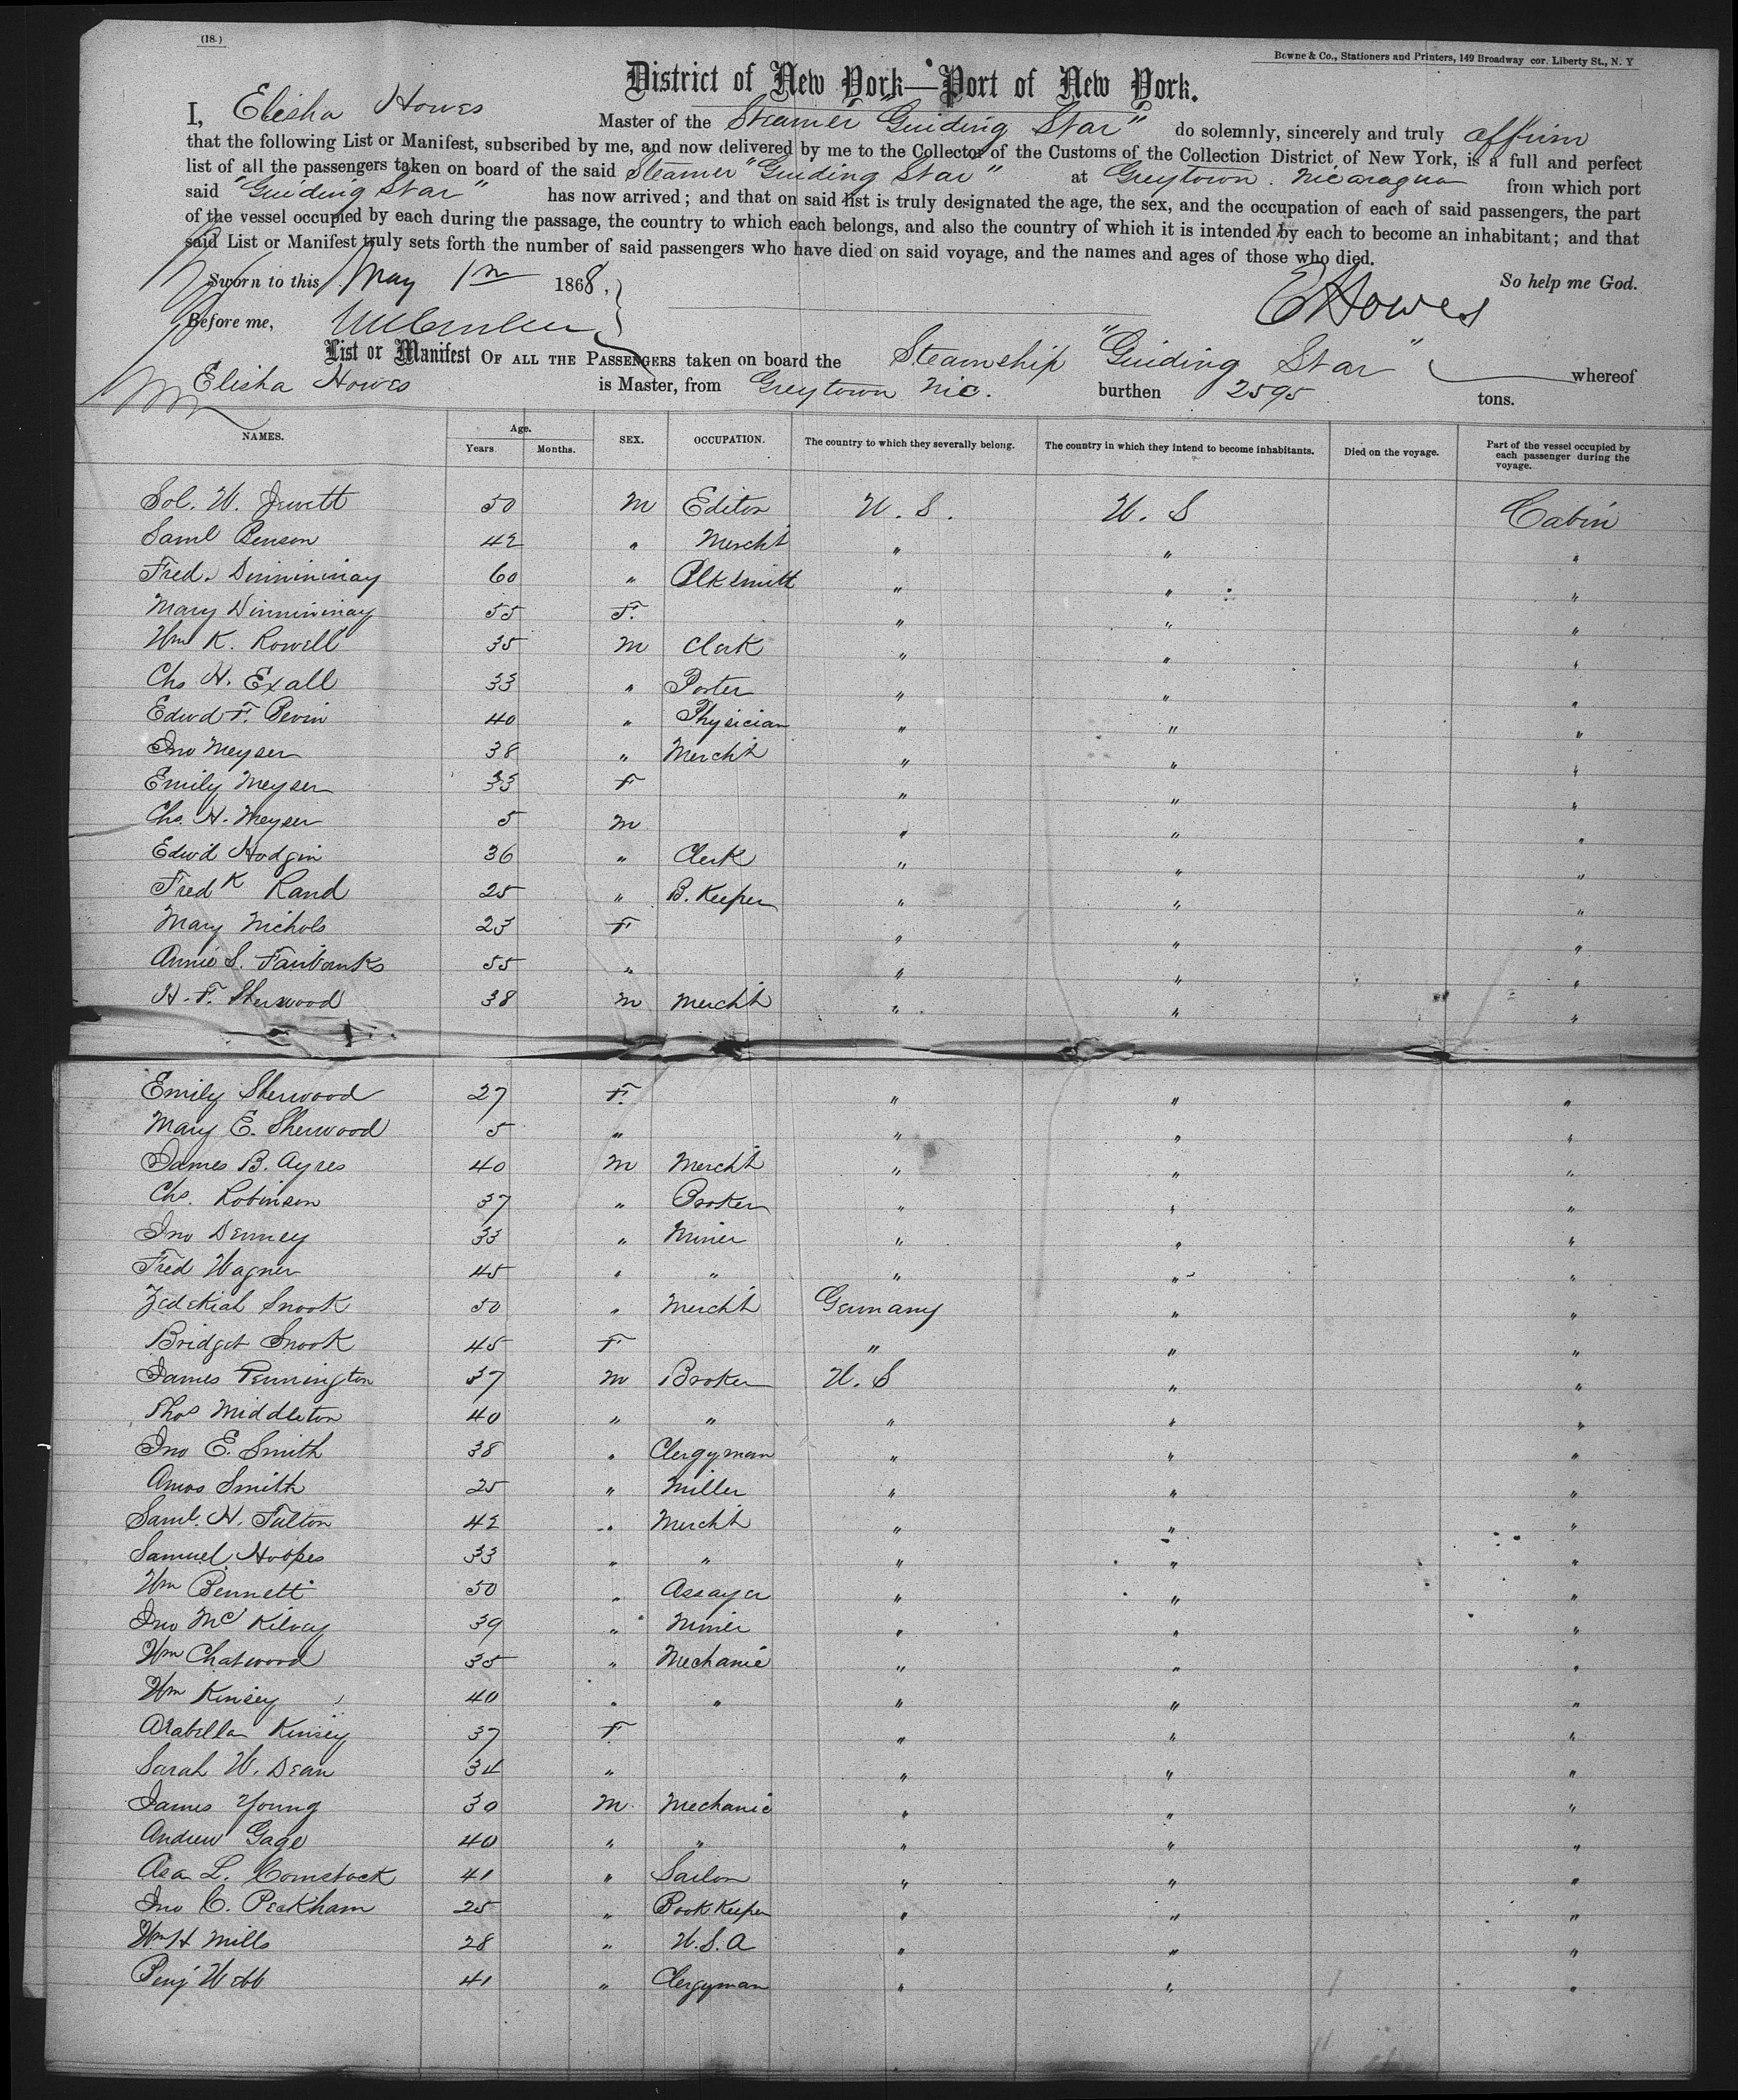 (18.)
Bowne & Co., Stationers and Printers, 149 Broadway cor. Liberty St., N. Y
District of New York—Port of New York.
I, Elisha Howes Master of the Steamer "Guiding Star" do solemnly, sincerely and truly affirm
that the following List or Manifest, subscribed by me, and now delivered by me to the Collector of the Customs of the Collection District of New York, is a full and perfect
list of all the passengers taken on board of the said Steamer "Guiding Star" at Greytown. Nicaragua from which port
said "Guiding Star" has now arrived; and that on said list is truly designated the age, the sex, and the occupation of each of said passengers, the part
of the vessel occupied by each during the passage, the country to which each belongs, and also the country of which it is intended by each to become an inhabitant; and that
said List or Manifest truly sets forth the number of said passengers who have died on said voyage, and the names and ages of those who died.
So help me God.
Sworn to this May 1st 1868,
EHowes
Before me,
List or Manifest OF ALL THE PASSENGERS taken on board the Steamship "Guiding Star" whereof
Elisha Howes is Master, from Greytown Nic. burthen 2595 tons.
NAMES. Age. Years Months. SEX. OCCUPATION. The country to which they severally belong. The country in which they intend to become inhabitants. Died on the voyage. Part of the vessel occupied by each passenger during the voyage.
Sol. W. Jewett 50 M Editor U. S. U. S Cabin
Saml Benson 42 " Mercht " " "
Fred. Dinnininay 60 " Blksmith " " "
Mary Dinnininay 55 F. " " "
Wm K. Rowell 35 M Clerk " " "
Chs H. Exall 33 " Porter " " "
Edwd F. Bevin 40 " Physician " " "
Jno Meyser 38 " Mercht " " "
Emily Meyser 33 F " " "
Chs. H. Meyser 5 M " " "
Edwd Hodgin 36 " Clerk " " "
Fredk Rand 25 " B. Keeper " " "
Mary Nichols 23 F " " "
Annie S. Fairbanks 55 " " " "
H. F. Sherwood 38 M Mercht " " "
Emily Sherwood 27 F. " " "
Mary E. Sherwood 5 " " " "
James B. Ayres 40 M Mercht " " "
Chs. Robinson 37 " Broker " " "
Jno Denney 33 " Miner " " "
Fred Wagner 45 " " " " "
Zedekiah Snook 50 " Mercht Germany " "
Bridget Snook 45 F " " "
James Pennington 37 M Broker U. S " "
Thos Middleton 40 " " " " "
Jno E. Smith 38 " Clergyman " " "
Amos Smith 25 " Miller " " "
Saml. H. Fulton 42 " Mercht " " "
Samuel Hoopes 33 " " " " "
Wm Bennett 50 " Assayer " " "
Jno McKilvay 39 " Miner " " "
Wm Chatwood 35 " Mechanic " " "
Wm Kinsey 40 " " " " "
Arabella Kinsey 37 F " " "
Sarah W. Dean 34 " " " "
James Young 30 M Mechanic " " "
Andrew Gage 40 " " " " "
Asa L. Comstock 41 " Sailor " " "
Jno C. Peckham 25 " Book Keeper " " "
Wm H Mills 28 " U.S.A " " "
Benj Webb 41 " Clergyman " " "